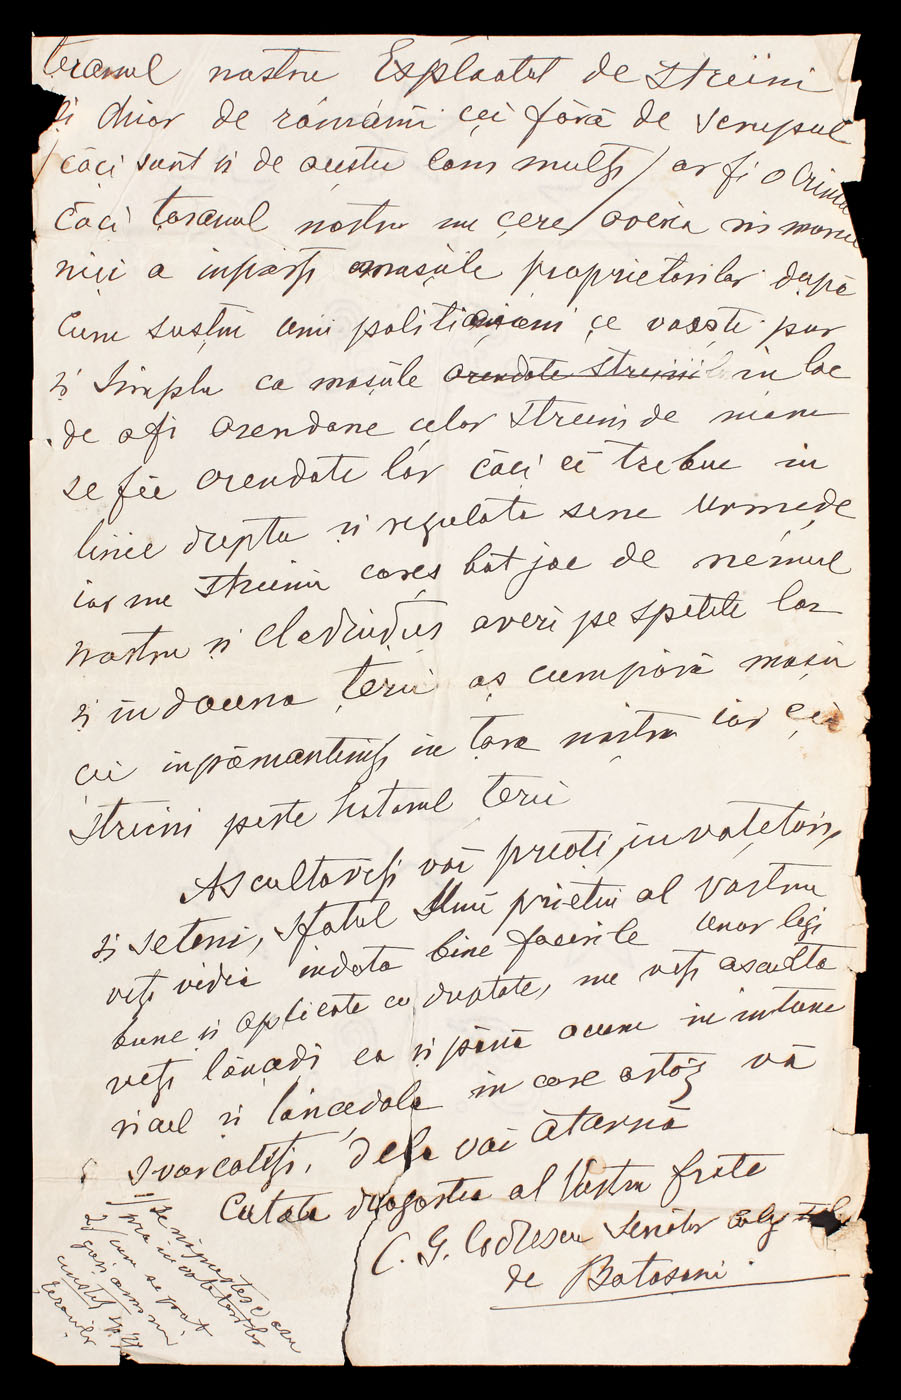 teranul nostru Esplaatat de streini
și chiar de români cei fără de scrupul
căci sunt și de aestia cam mulți / ar fi o Crimă
Căci țaranul nostru nu cere averea nimanui
nici a inparți mosiile proprietarilor după
cum susțin unii politiciani ce voește pur
și simplu ca mosiile arendate streinilor in loc
de afi arendane celor streini de niam
se fie arendate lor căci ei trebue in
linie drepta și regulata sene urmeze
iar nu streinii care-ș bat joc de némul
nostru și cladindu-ș averi pe spetele lor
și in dauna țerii aș cumpără mosii
cei inpământeniți in țara nostra iar cei
streini peste hotarul terii
Ascultați voi preoți, invatetori,
și seteni, sfatul Unui prieten al vostru
veți vidia indata bine facerile unor legi
bune și aplicate cu dreptate, nu veți asculta
veți lâncezi ca și până acum in intune
ricul și lâncezala in care astăz vă
svarcoliți. dela voi atarnă
Cu tata dragostea al Vostru frate
C. G. Codrescu Senator Coleg
de Botosani.
1) se niporteste
pria invatatorilor
2) cum se pot
gasi